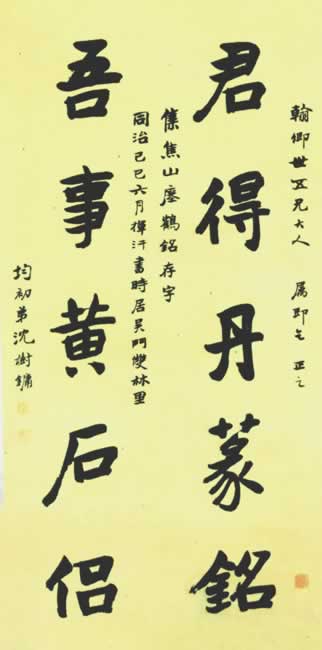 翰卿世五兄大人 属即乞 正之
君得丹篆銘
集焦山瘞鶴銘存字
同治己巳六月揮汗書時居吴門雙林里
吾事黄石侶
均初弟沈樹鏞